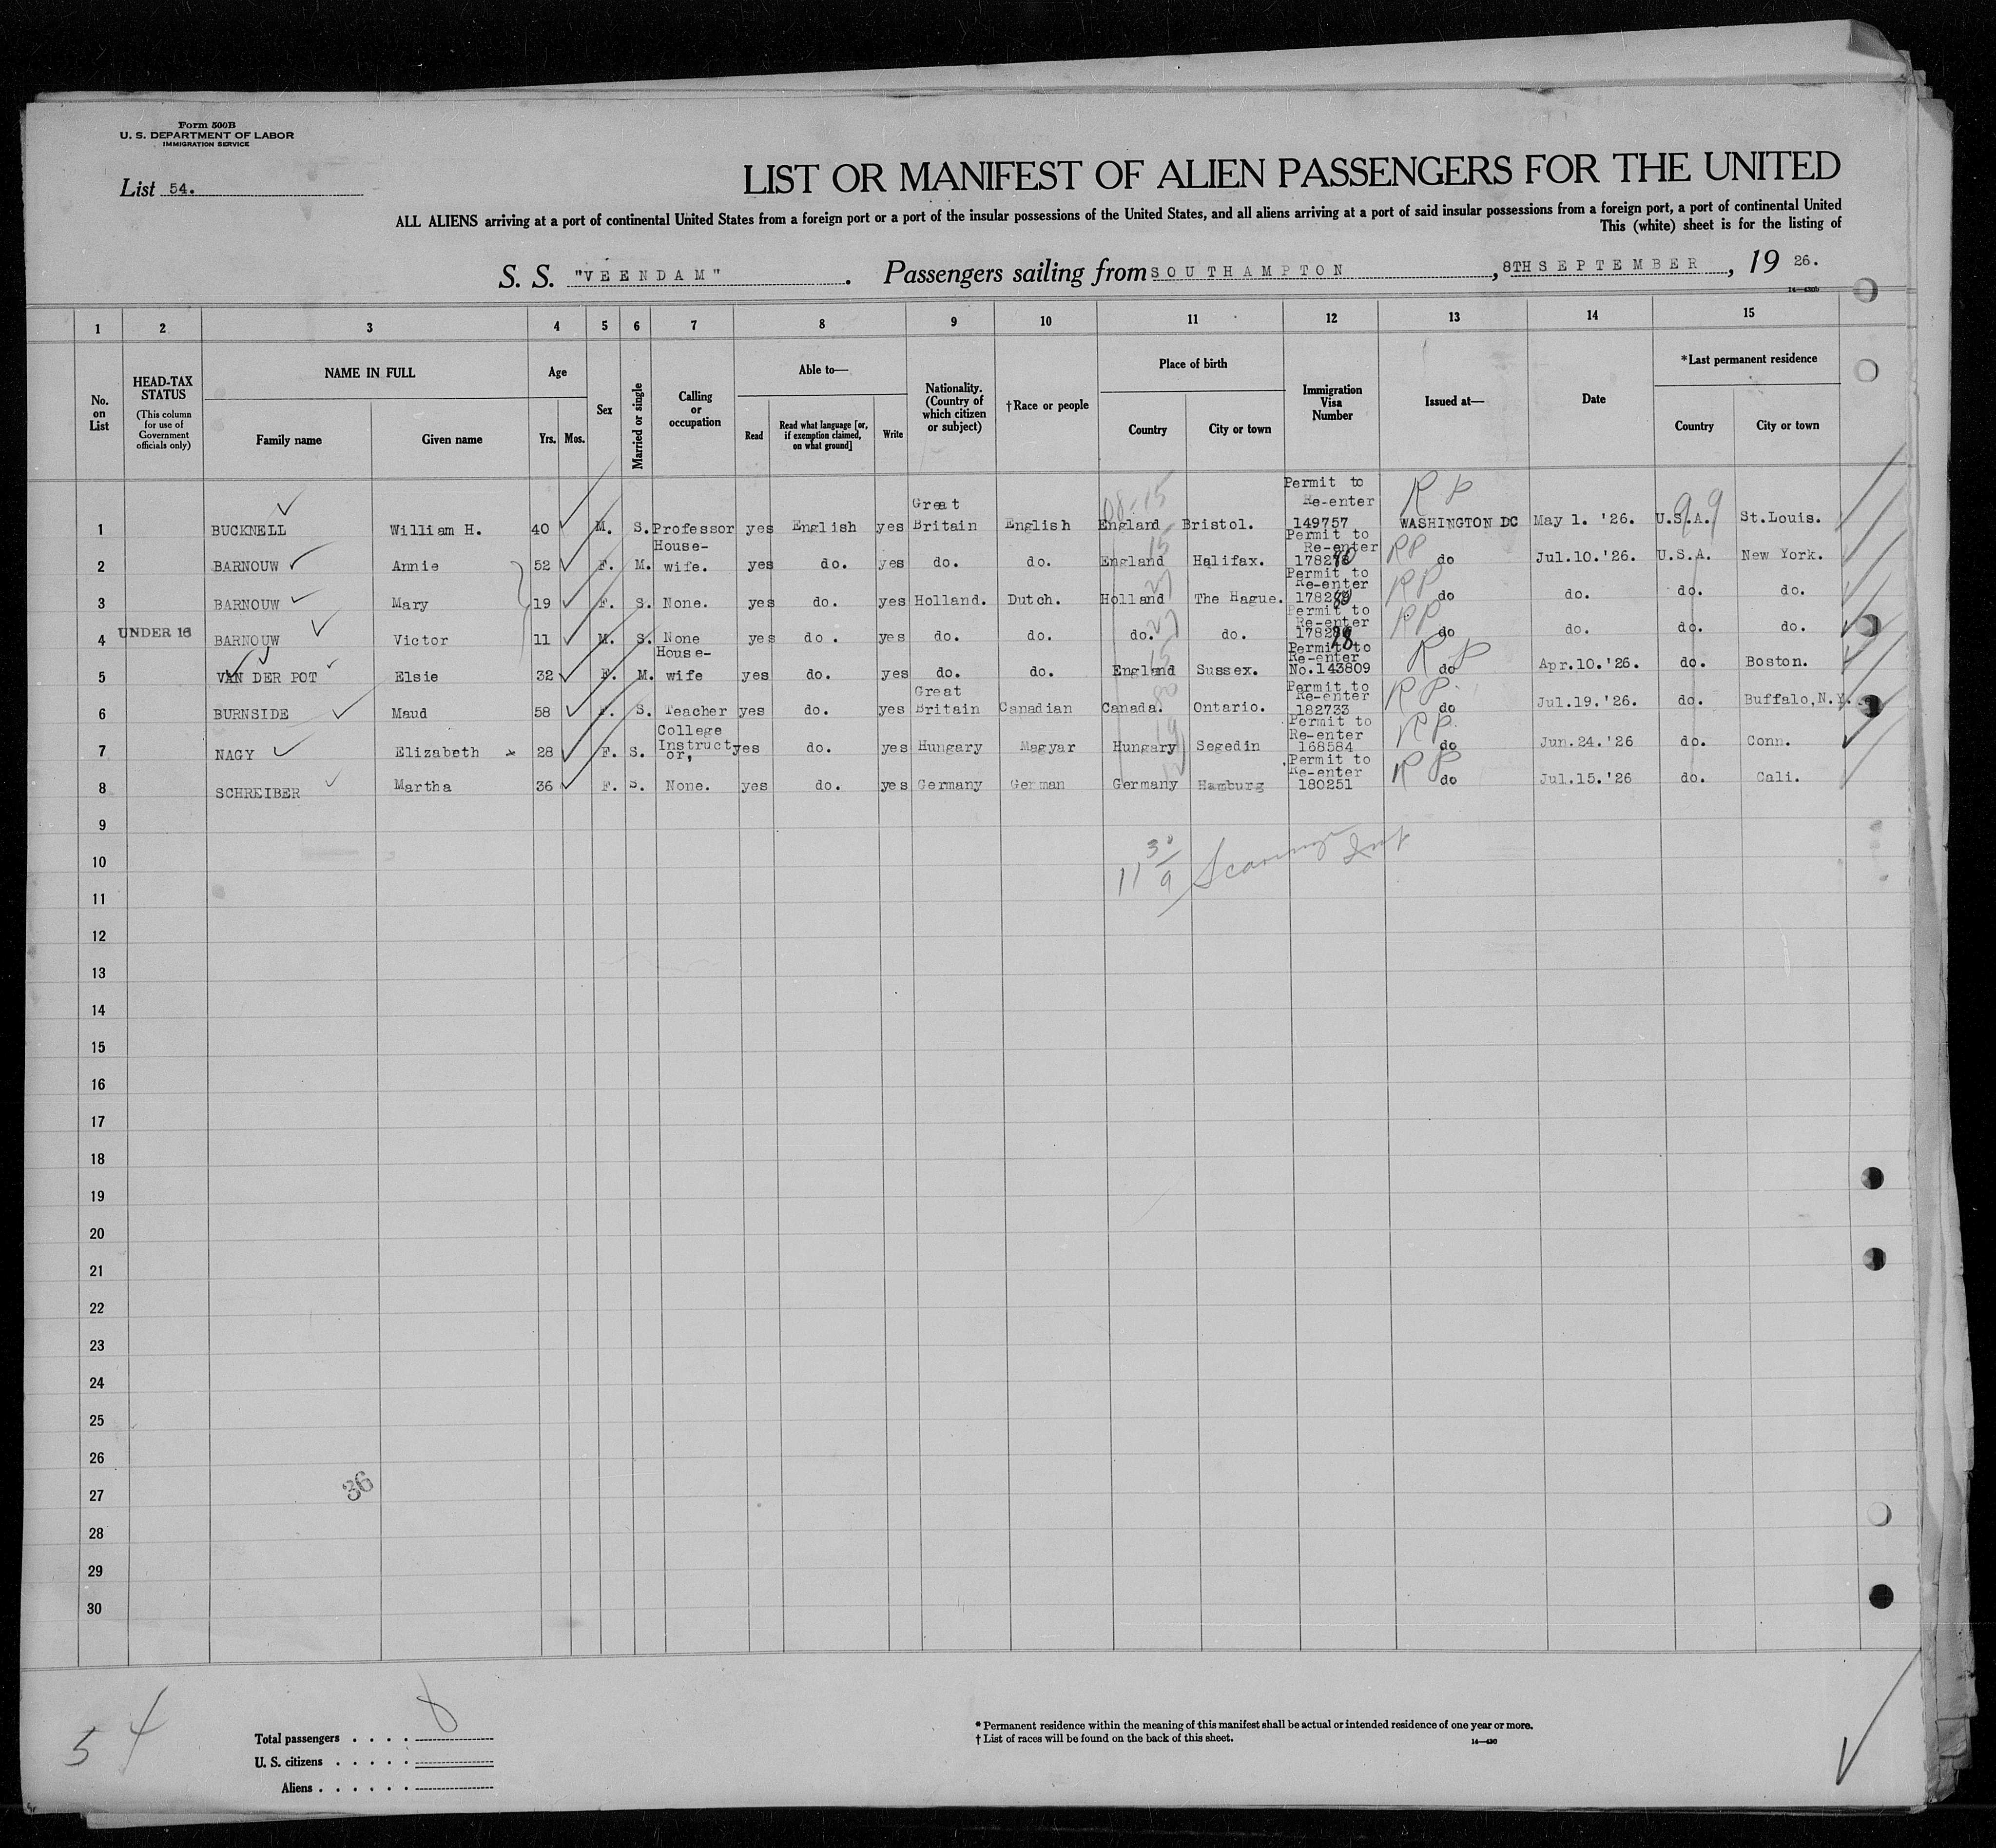 Form 500B
U. S. DEPARTMENT OF LABOR
IMMIGRATION SERVICE
List 54.
LIST OR MANIFEST OF ALIEN PASSENGERS FOR THE UNITED
ALL ALIENS arriving at a port of continental United States from a foreign port or a port of the insular possessions of the United States, and all aliens arriving at a port of said insular possessions from a foreign port, a port of continental United
This (white) sheet is for the listing of
S. S. "VEENDAM". Passengers sailing from SOUTHAMPTON, 8TH SEPTEMBER, 1926.
14—430b
1 2 3 4 5 6 7 8 9 10 11 12 13 14 15
No. on List
HEAD-TAX STATUS
(This column for use of Government officials only)
NAME IN FULL
Family name Given name
Age
Yrs. Mos.
Sex
Married or single
Calling or occupation
Able to—
Read
Read what language [or, if exemption claimed, on what ground]
Write
Nationality. (Country of which citizen or subject)
†Race or people
Place of birth
Country City or town
Immigration Visa Number
Issued at—
Date
*Last permanent residence
Country City or town
1 BUCKNELL William H. 40 M. S. Professor yes English yes Great Britain English England Bristol. Permit to Re-enter 149757 R P WASHINGTON DC May 1. '26. U.S.A. St.Louis.
08-15
99
2 BARNOUW Annie 52 F. M. House-wife. yes do. yes do. do. England Halifax. Permit to Re-enter RP do Jul.10.'26. U.S.A. New York.
15
3 BARNOUW Mary 19 F. S. None. yes do. yes Holland. Dutch. Holland The Hague. Permit to Re-enter RP do do. do. do.
27
4 UNDER 16 BARNOUW Victor 11 M. S. None yes do. yes do. do. do. do. Permit to Re-enter RP do do. do. do.
27
5 VAN DER POT Elsie 32 F. M. House-wife yes do. yes do. do. England Sussex. Permit to Re-enter No.143809 R P do Apr.10.'26. do. Boston.
15
6 BURNSIDE Maud 58 F. S. Teacher yes do. yes Great Britain Canadian Canada. Ontario. Permit to Re-enter 182733 R P. do Jul.19.'26. do. Buffalo,N.Y.
7 NAGY Elizabeth 28 F. S. College Instructor, yes do. yes Hungary Magyar Hungary Segedin Permit to Re-enter 168584 R P. do Jun.24.'26 do. Conn.
19
8 SCHREIBER Martha 36 F. S. None. yes do. yes Germany German Germany Hamburg Permit to Re-enter 180251 R P do Jul.15.'26 do. Cali.
9
10
11 30/9
11
12
13
14
15
16
17
18
19
20
21
22
23
24
25
26
27
36
28
29
30
54
Total passengers . . . . 8
U. S. citizens . . . . .
Aliens . . . . . .
* Permanent residence within the meaning of this manifest shall be actual or intended residence of one year or more.
† List of races will be found on the back of this sheet.
14—430